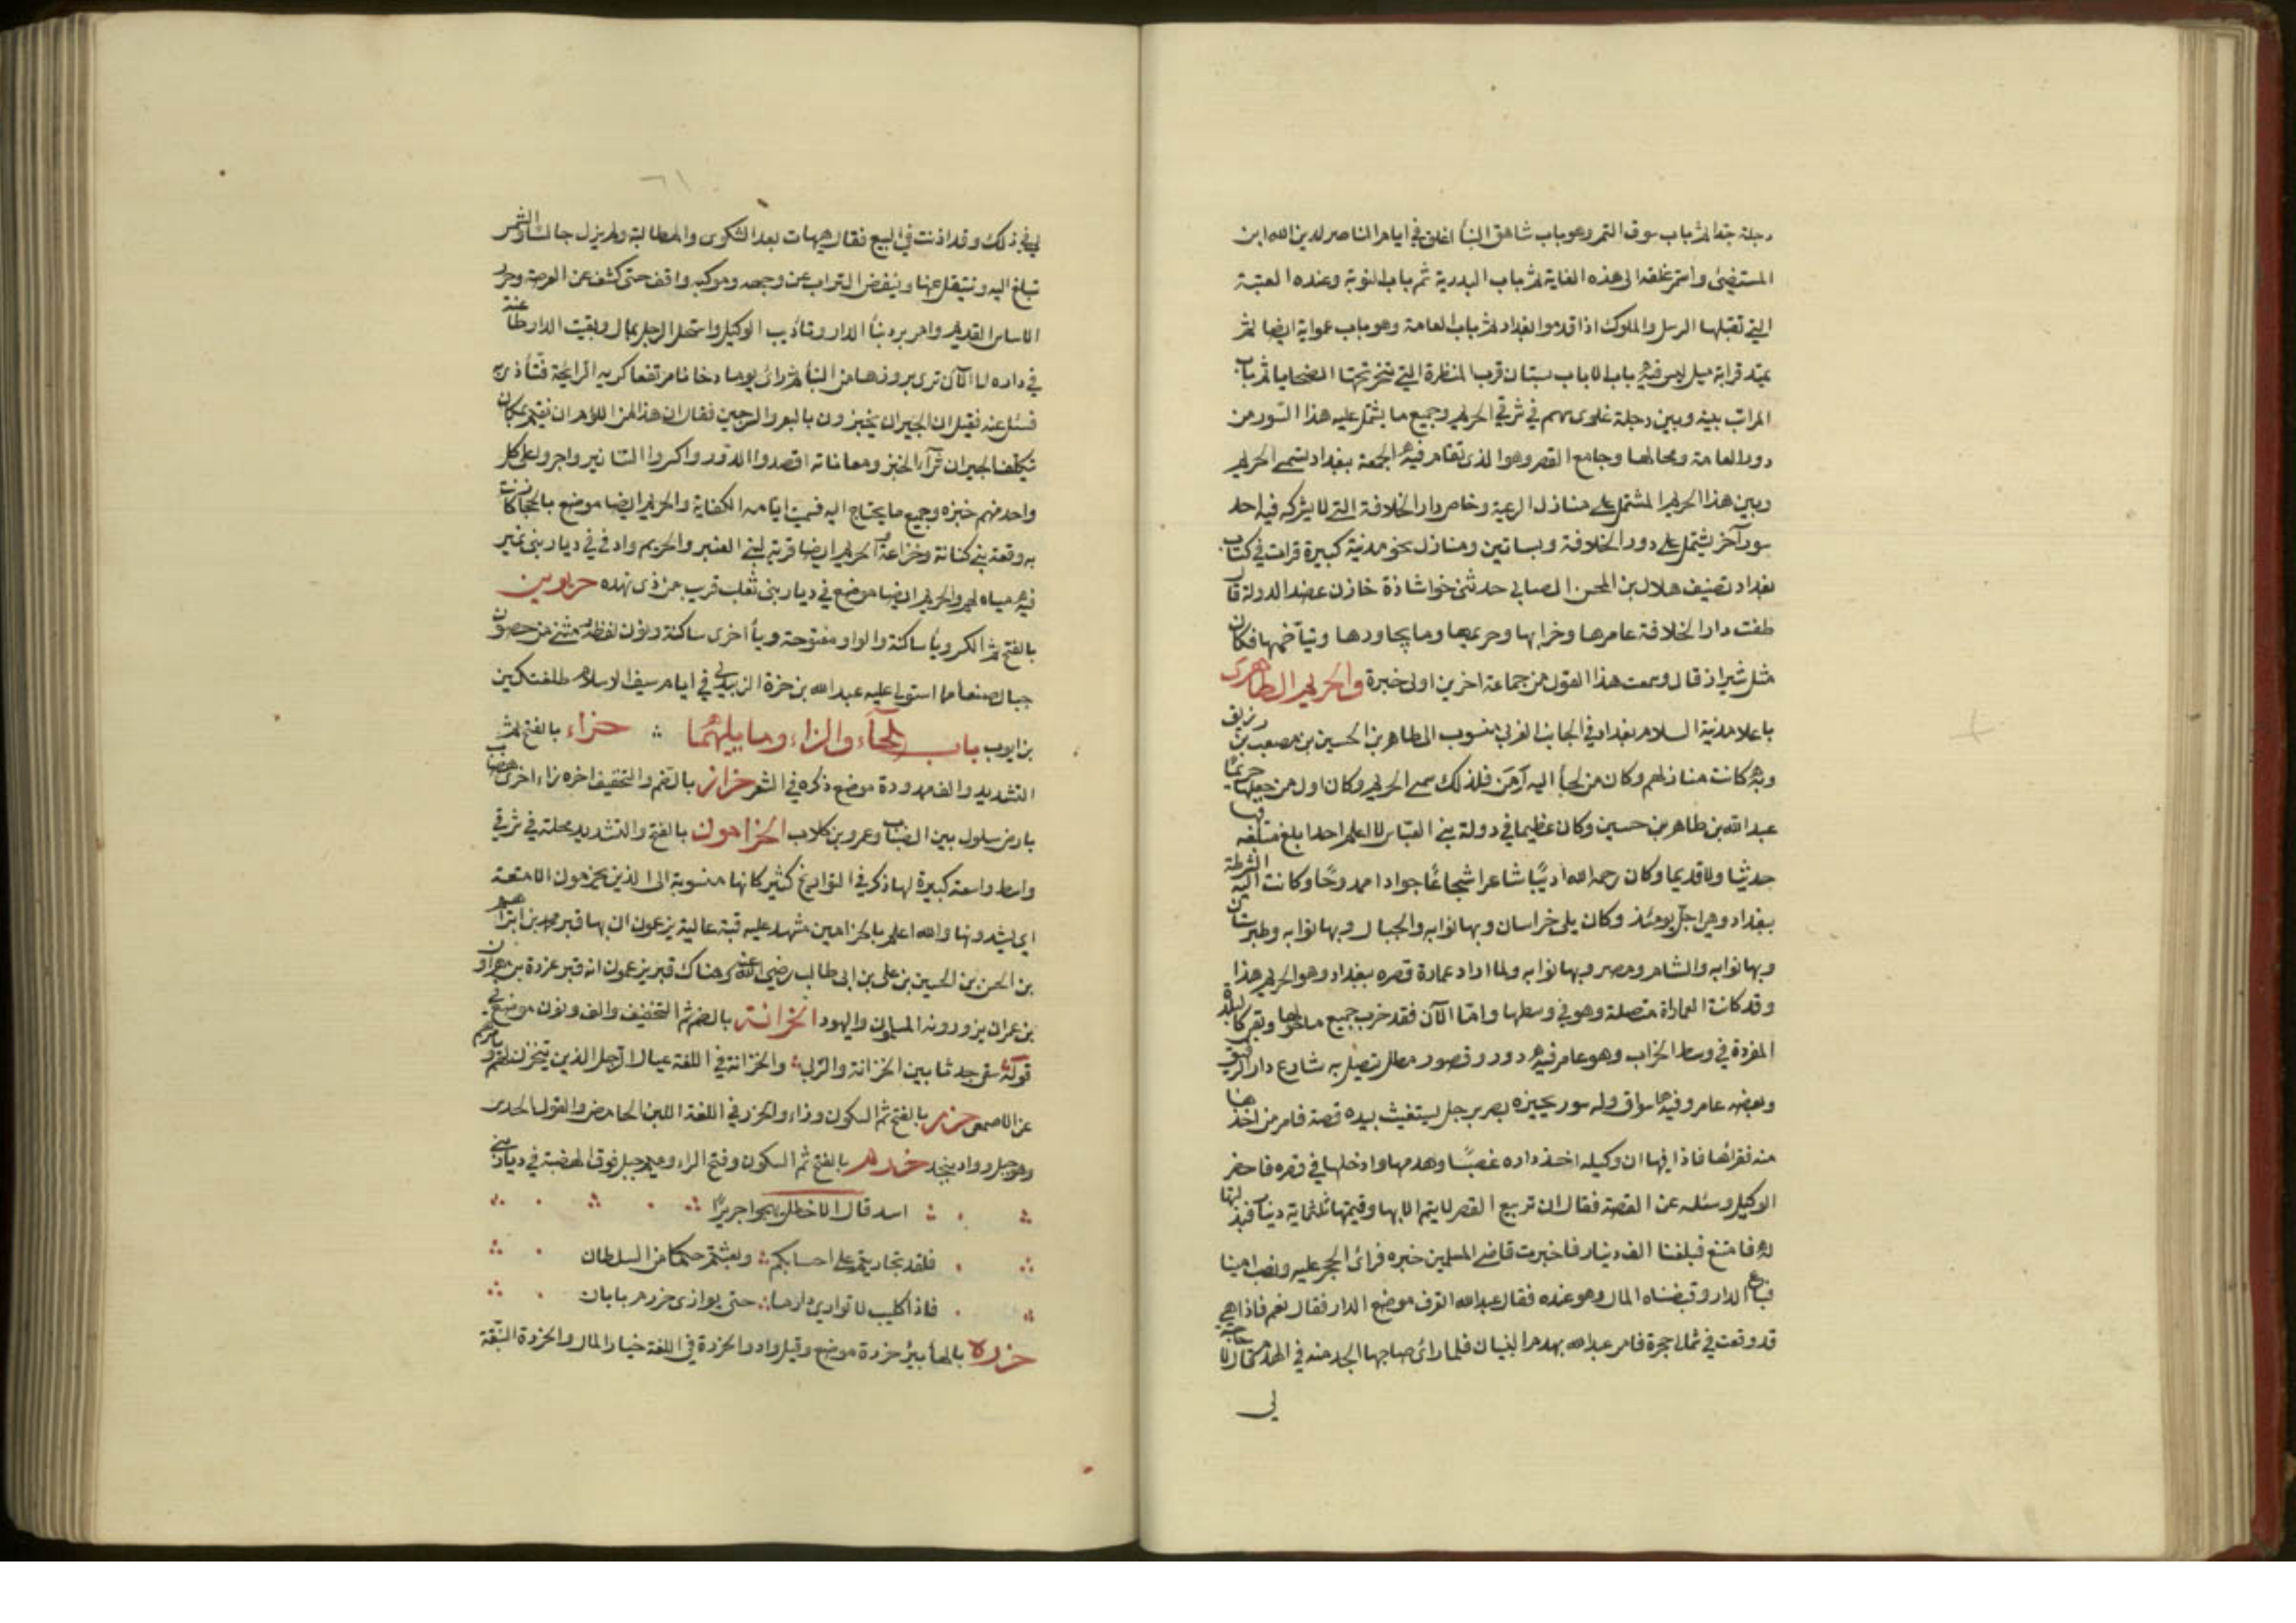 دجلة جدا ثم باب سوق التمر وهو باب شاهق البنأ اغلق في ايام الناصر لدين الله ابن
المستضئ واستمر غلقه الى هذه الغاية ثم باب البدرية ثم باب النوبة وعنده العتبة
التي تقبلها الرسل والملوك اذا قدموا بغداد ثم باب العامة وهو باب عموابة ايضا ثم
يمتد قرابة ميل ليس فيه باب الا باب بستان قرب المنظرة التي تنحر تحتها الضحايا ثم باب
المراتب بينه وبين دجلة غلوى سهم في شرقي الحريم وجميع ما يشتمل عليه هذا السور من
دور العامة ومحالها وجامع القصر وهو الذي تقام فيه الجمعة ببغداد يسمى الحريم
وبين هذا الحريم المشتمل على منازل الرعية وخاص دار الخلافة التي لا يشركه فيه احد
سور آخر يشتمل على دور الخلافة وبساتين ومنازل نحو مدينة كبيرة قرات في كتاب
بغداد تصنيف هلال بن المحسن الصابي حدثني خواشاذة خازن عضد الدولة قال
طفت دار الخلافة عامرها وخرابها وحريمها وما يجاورها ويتآخمها فكان
مثل شيراز قال وسمعت هذا القول من جماعة اخرين اولى خبرة والحريم الطاهرى
باعلا مدينة السلام بغداد في الجانب الغربي منسوب الى طاهر بن الحسين بن مصعب بن رزيق
وبه كانت منازلهم وكان من لجأ اليه آمن فلذلك سمي الحريم وكان اول من جعلها حريمًا
عبدالله بن طاهر بن حسين وكان عظيما في دولة بني العباس لا اعلم احدا بلغ مبلغه فيها
حديثا ولا قديما وكان رحمه الله اديبًا شاعرا شجاعًا جوادا ممدوحًا وكانت اليه الشرطة
ببغداد وهي اجل يومئذ وكان يلي خراسان وبها نوابه والجبال وبها نوابه وطبرستان
وبها نوابه والشام ومصر وبها نوابه ولما اراد عمارة قصره ببغداد وهو الحريم هذا
وقد كانت العماراة متصلة وهو في وسطها واما الآن فقد خرب جميع ما حولها وبقي كالبلدة
المفردة في وسط الخراب وهو عامر فيه دور وقصور مطل تصل به شارع دار الرقيق
وبعضه عامر وفيه اسواق وله سور يحيزه بصر برجل يستغيث بيده قصة فامر من اخذها
منه فقرأها فاذا فيها ان وكيله اخذ داره غصبًا وهدمها وادخلها في قصره فاحضر
الوكيل وسئله عن القصة فقال ان تربيع القصر لا يتم الا بها وقيمتها ثلثماية دينار فبذلتها
له فامتنع فبلغنا الف دينار فاخبرت قاضي المسلمين خبره فرائ الحجر عليه ونصب امينا
فباع الدار وقبضناه المال وهو عنده فقال عبدالله اتعرف موضع الدار فقال نعم فاذا هي
قد وقعت في شمال حجرة فامر عبدالله بهدم البنيان فلما رائ صاحبها الجد منه في الهدم قال لا حاجة
لي
لي في ذلك وقد اذنت في البيع فقال هيهات بعد الشكوى والمطالبة ولم يزل جالسا والشمس
تبلغ اليه وينتقل عنها وينفض التراب عن وجهه وموكبه واقف حتى كشف عن العرصة وحرر
الاساس القديم وامر برد بنأ الدار وتأديب الوكيل واستحل الرجل بمال وبقيت الدار طاعنة
في داره الى الآن ترى بروزها من البنأ ثم رائ يوما دخانا مرتفعا كريه الرايحة فتأذى به
فسئل عنه فقيل ان الجيران يخبزون بالبعر والسرجين فقال ان هذا لمن اللؤم ان نقيم بمكان
تكلف الجيران شرآء الخبز ومعاناته اقصدوا الدور واكسروا التنانير واجروا على كل
واحد منهم خبزه وجميع ما يحتاج اليه فسميت ايامه الكفاية والحريم ايضا موضع بالحجاز كانت
به وقعة بني كنانة وخزاعة والحريم ايضا قرية لبني العنبر والحريم واد في في ديار بني نمير
فيه مياه لهم والحريم ايضا موضع في ديار بني ثعلب قريب من ذي نهده حريوين
بالفتح ثم الكسر ويأ ساكنة والواو مفتوحة ويأ اخرى ساكنة ونون لفظه مثنى من حصون
جبال صنعأ مما استولى عليه عبدالله بن حمزة الزيدي في ايام سيف الاسلام طلغتكين
بن ايوب باب الحآء والزاء وما يليهما حزاء بالفتح ثم
التشديد والف ممدودة موضع ذكره في الشعر حزاز بالضم والتخفيف اخره زاء اخرى هضاب
بارض سلول بين الضباب وعمرو بن كلاب الحزامون بالفتح والتشديد محلة في شرقي
واسط واسعة كبيرة لها ذكر في التواريخ كثير كانها منسوبة الى الذين يحزمون الامتعة
اي يشدونها والله اعلم بالحزامين مشهد عليه قبة عالية يزعمون ان بها قبر محمد بن ابراهيم
بن الحسن بن الحسين بن علي بن ابي طالب رضي الله عنه وهناك قبر يزعمون انه قبر عزرة بن هراون
بن عمران يزورونه المسلمون واليهود الحزانة بالضم ثم التخفيف والف ونون موضع في
قوله سقى جدثا بين الحزانة والربى والحزانة في اللغة عيال الرجل الذين يتحزن لهم وبامرهم
عن الاصمعي حزر بالفتح ثم السكون وزاء والحزر في اللغة اللبن الحامض والقول الحدس
وهو جبل وواد بنجد حزرم بالفتح ثم السكون وفتح الراء وميم جبل فوق الهضبة في ديار بني
اسد قال الاخطل يهجوا جريرًا
فلقد تجاريتم على احسابكم وبعثتم حكما من السلطان
فاذا كليب لا توازي دارما حتى يوازى حزرم بابان
حزره بالهأ بئر حزرة موضع وقيل واد والحزرة في اللغة خيار المال والحزرة النبقة